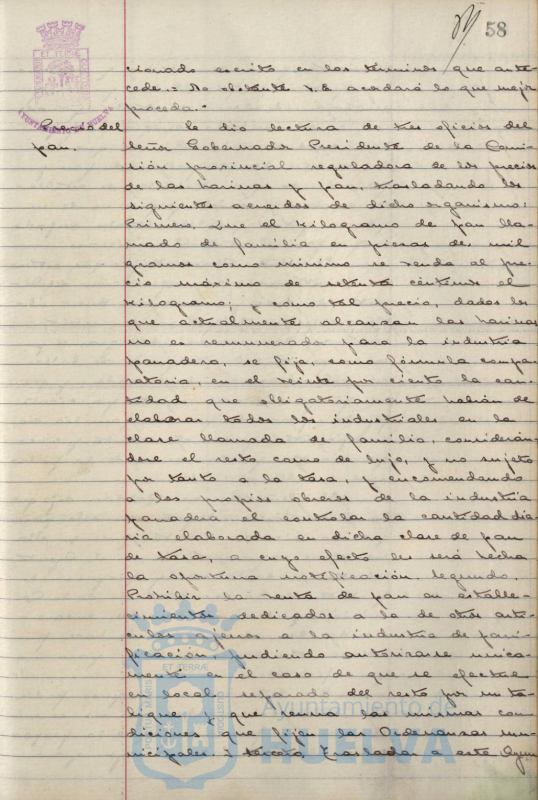 58
cionado escrito en los términos que ante-
cede.= No obstante V.E. acordará lo que mejor
proceda.-
Precio del
pan.
Se dio lectura de tres oficios del
Señor Gobernador Presidente de la Comi-
sión provincial reguladora de los precios
de las harinas y pan, trasladando los
siguientes acuerdos de dicho organismo:
Primero, Que el kilogramo de pan lla-
mado de familia en piezas de mil
gramos como mínimo se venda al pre-
cio máximo de setenta céntimos el
kilogramo; y como tal precio, dados los
que actualmente alcanzan las harinas
no es remunerado para la industria
panadera, se fija, como fórmula compen-
ratoria, en el veinte por ciento la can-
tidad que obligatoriamente habrán de
elaborar todos los industriales en la
clase llamada de familia, considerán-
dose el resto como de lujo, y no sujeto
por tanto a la tasa, y encomendando
a los propios obreros de la industria
panadera el controlar la cantidad dia-
ria elaborada en dicha clase de pan
de tasa, a cuyo efecto les será hecha
la oportuna notificación. Segundo.
Prohibir la venta de pan en estable-
cimientos dedicados a la de otros artí-
culos ajenos a la industria de pani-
ficación, pudiendo autorizarse única-
mente en el caso de que se efectúe
en local separado del resto por un ta-
bique y que reuna las mismas con-
diciones que fijen las Ordenanzas mu-
nicipales. Tercero, Traslada a este Ayun
ET TERRAE
AYUNTAMIENTO DE HUELVA
Ayuntamiento de
HUELVA